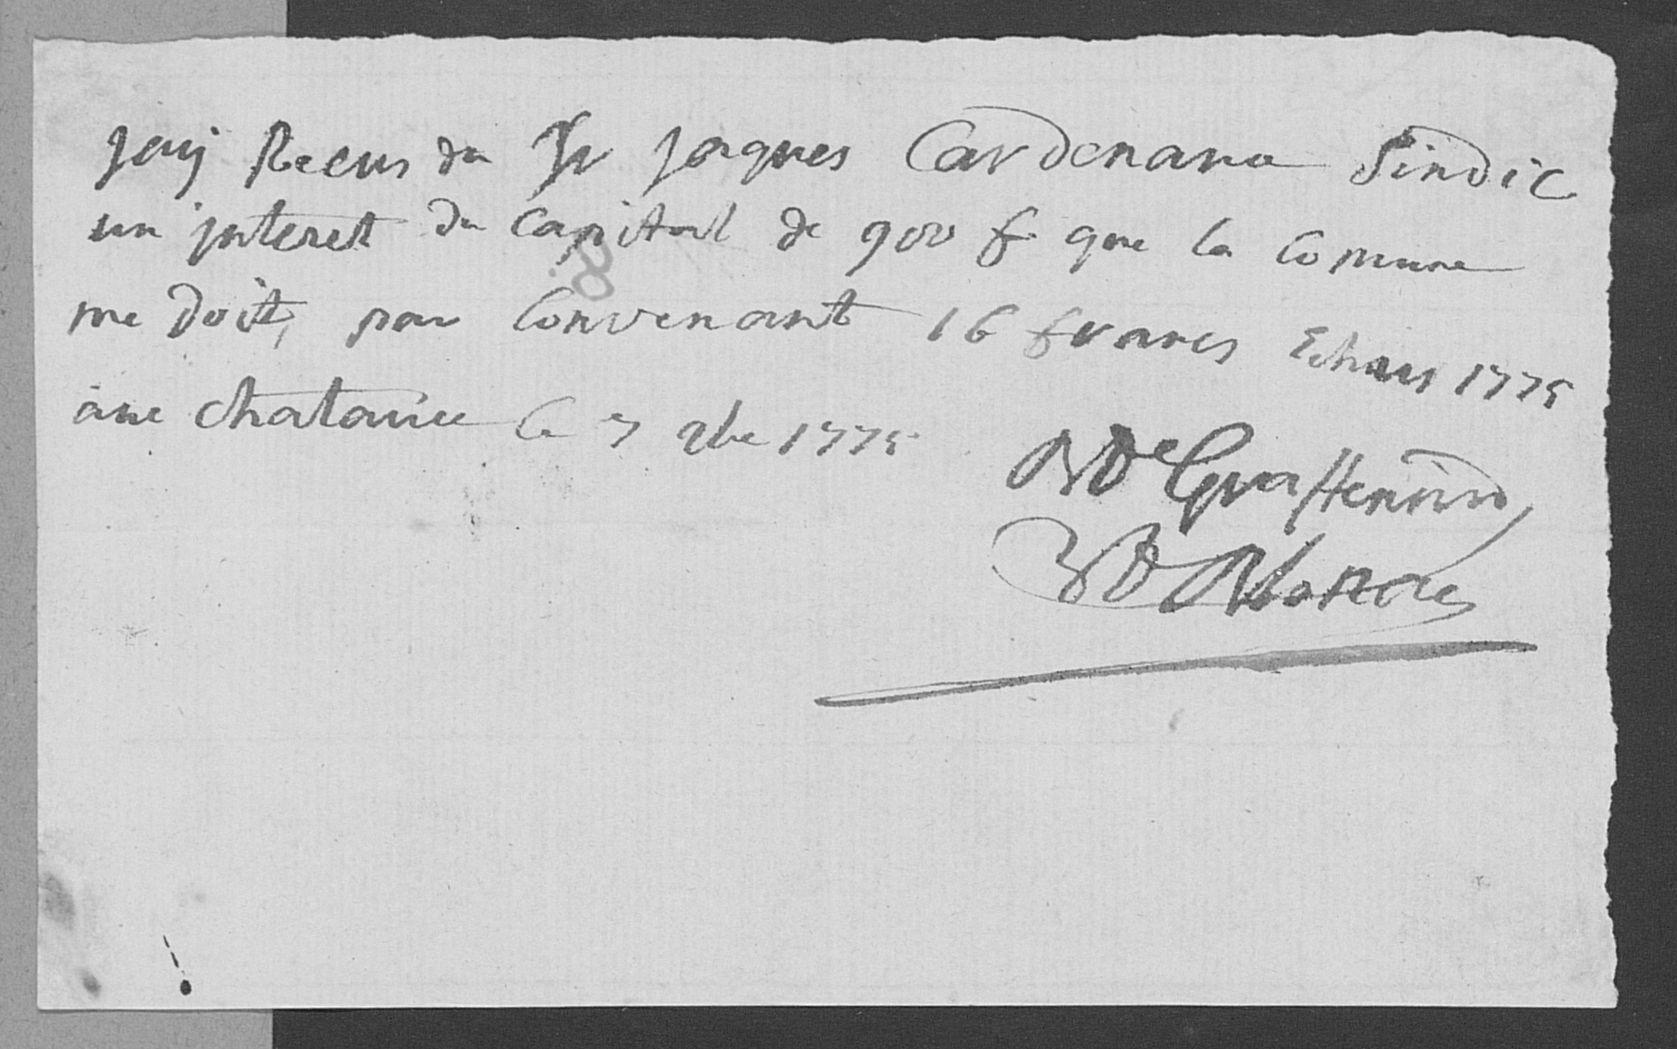 jaij Recus du Sr jaques Cardenaua Sindic
un jnteret du Capital de 900 f que la Comune
me doit, par Convenant 16 francs Echus 1775
le 7 9be 1775
De Graffenrid
De Blonay